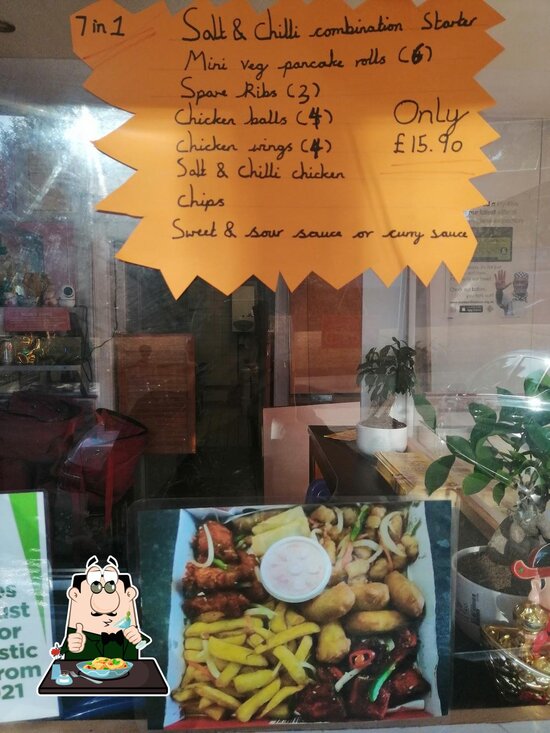 7 in 1
Salt & Chilli combination Starter
Mini veg pancake rolls (6)
Spare Ribs (3)
Chicken balls (4)
Only
chicken wings (4)
£15.90
Salt & Chilli chicken
Chips
Sweet & sour sauce or curry sauce